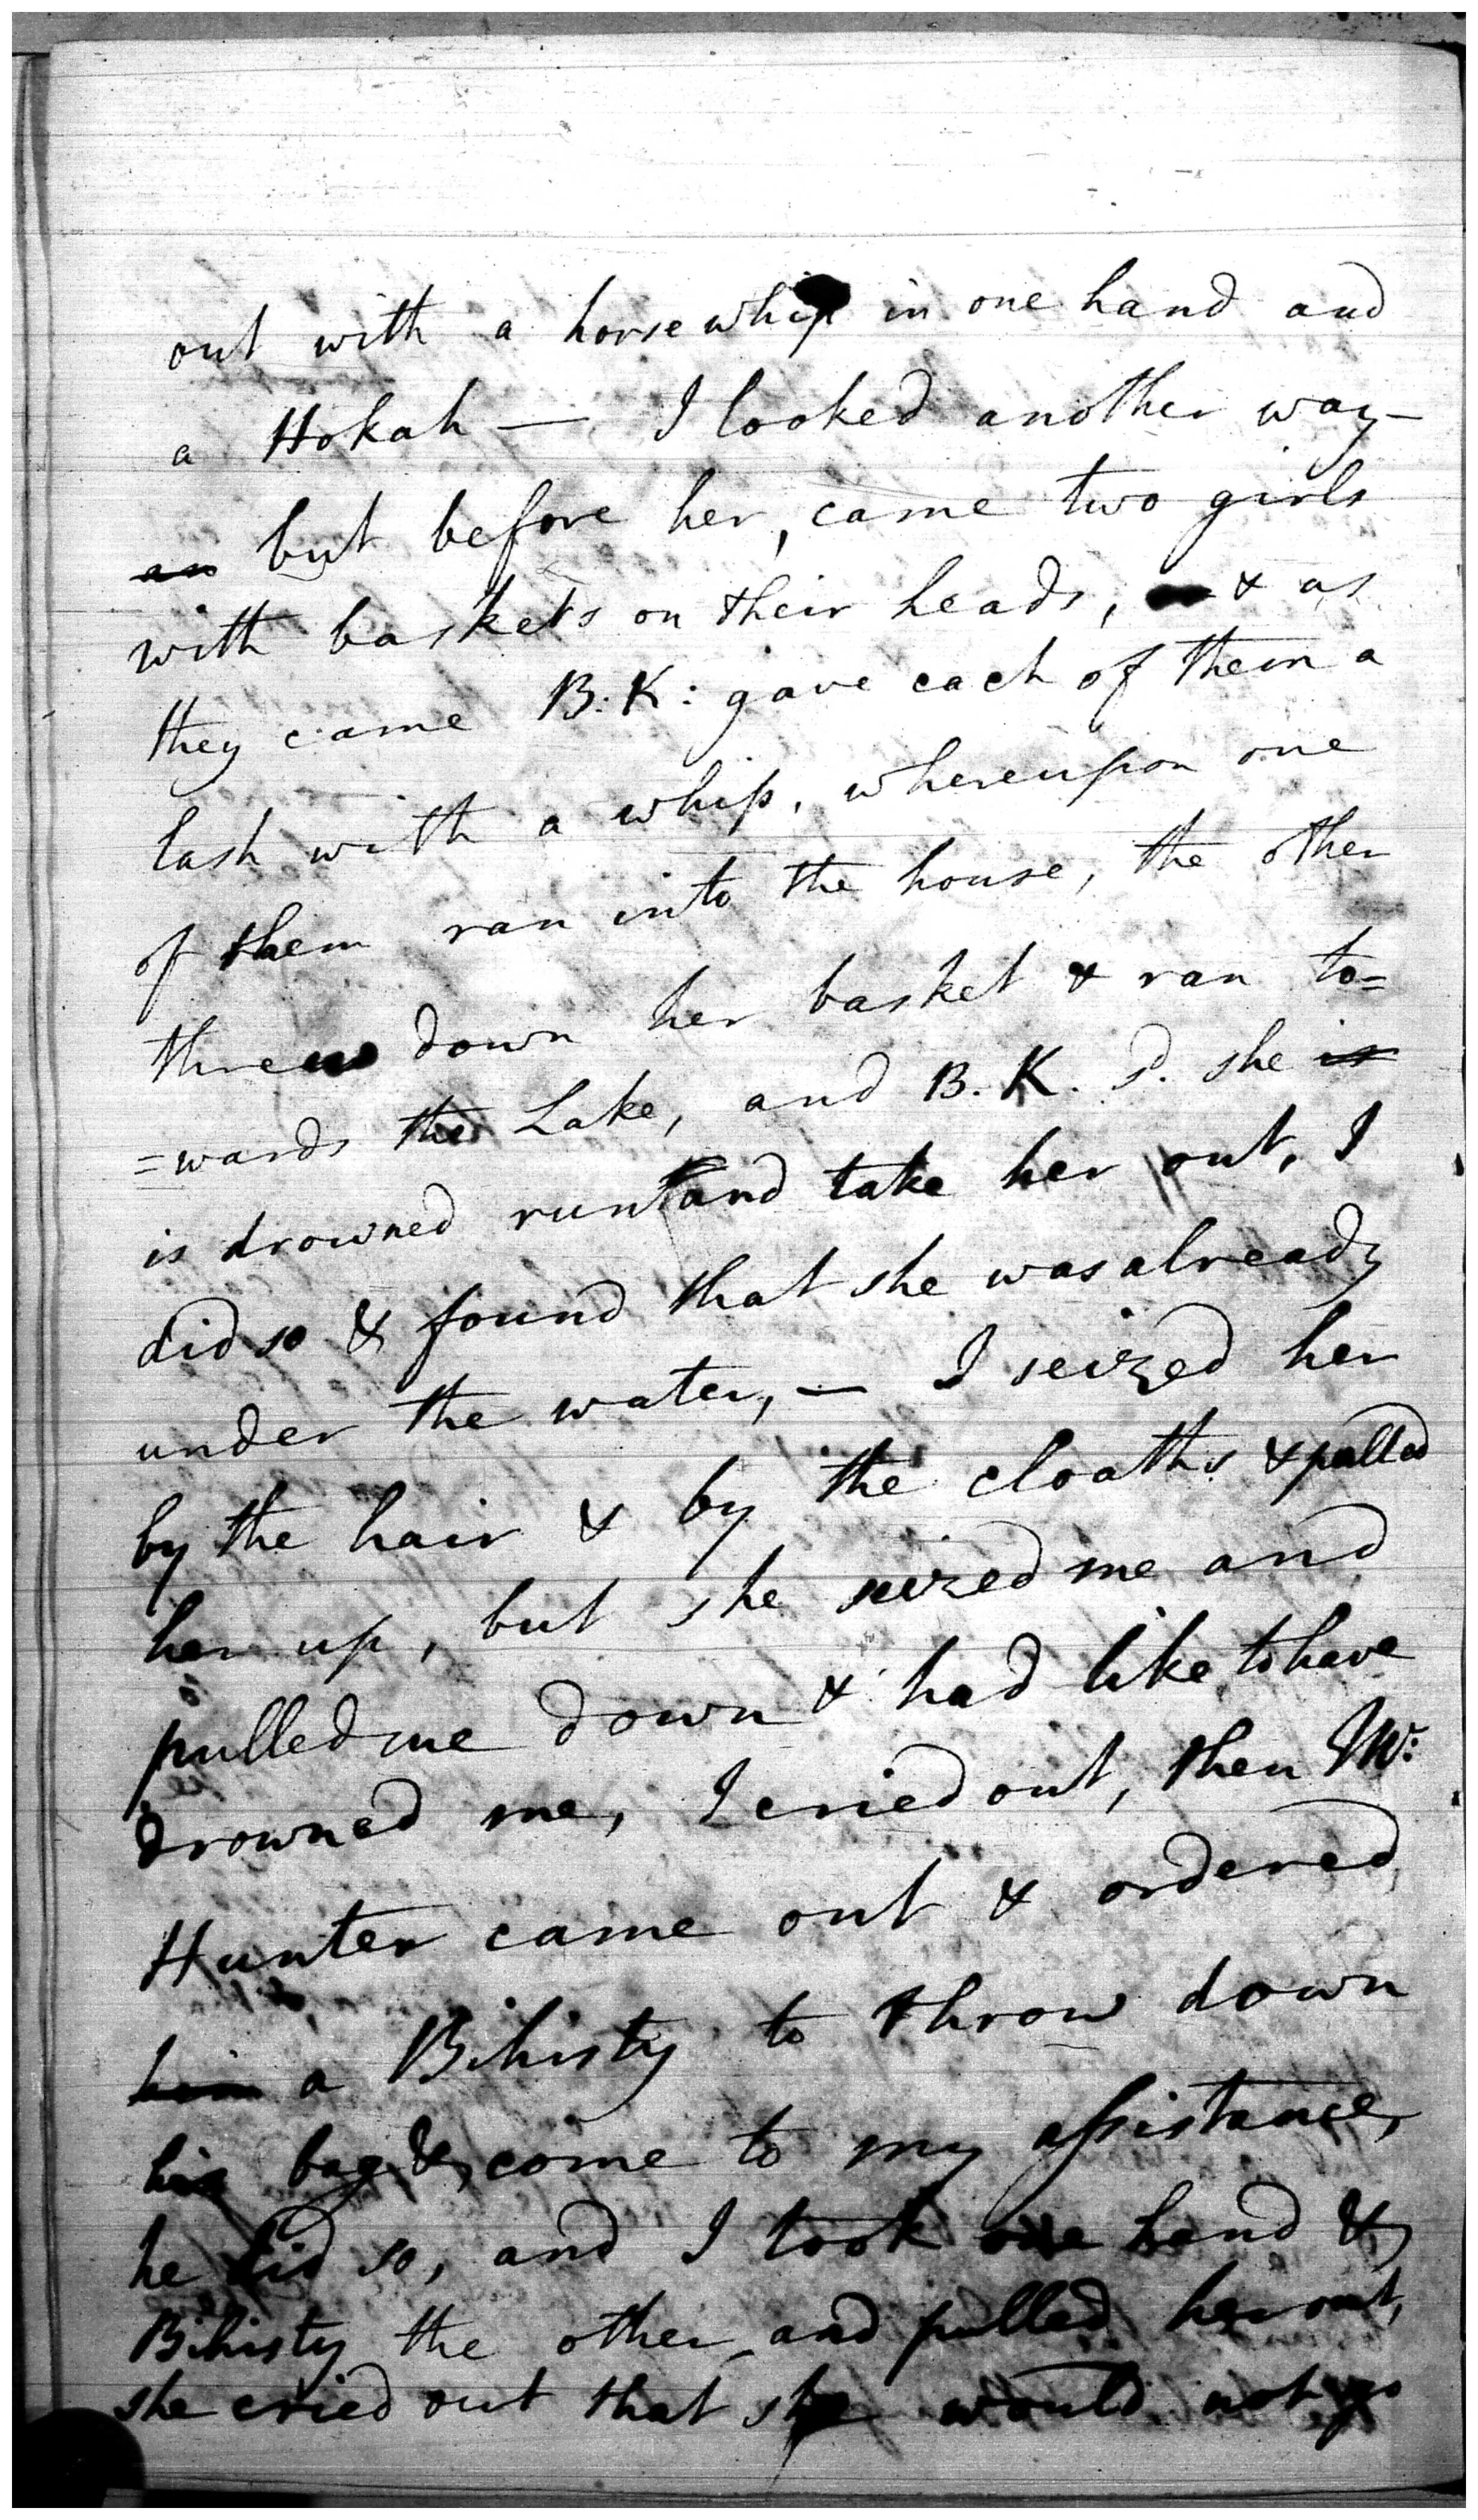 out with a horse whip in one hand and
a Hokah — I looked another way —
an but before her, came two girls
with baskets on their heads, & as
they came B: K: gave each of them a
lash with a whip, whereupon one
of them ran into the house, the other
threw down her basket & ran to=
=wards the Lake, and B. K. sd. she is
is drowned run and take her out, I
did so & found that she was already
under the water, — I seized her
by the hair & by the cloaths & pulled
her up, but she seized me and
pulled me down & had like to have
drowned me, I cried out, then Mr:
Hunter came out & ordered
him a Bihisty to throw down
his bag & come to my assistance,
he did so, and I took one hand &
Bihisty the other and pulled her out,
she cried out that she would not go